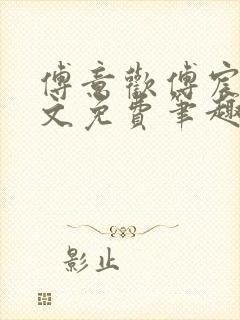 傅意歡傅宸
文免費筆趣
影止